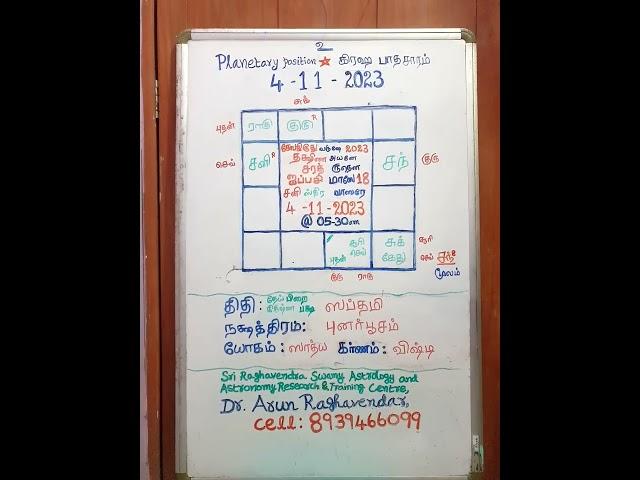 உ
Planetary position ☆ கிரஹ பாதசாரம்
4 -11 - 2023
சுக்
புதன் ராகு குரு R
செவ் சனி R சந் குரு
வருஷ 2023
தக்ஷிண அயனம்
சரத் ருது
ஐப்பசி மாஸே 18
சனி ஸ்திர வாஸரே
4 -11-2023
@ 05-30am
புதன் சூரி செவ் சுக் கேது சூரி செவ்
மூலம்
குரு ராகு
திதி : தேய் பிறை ஸப்தமி
நக்ஷத்திரம்: புனர்பூசம்
யோகம் : ஸாத்ய கரணம் : விஷ்டி
Sri Raghavendra Swamy Astrology and
Astronomy Research & Training Centre,
Dr. Arun Raghavendar,
cell: 8939466099